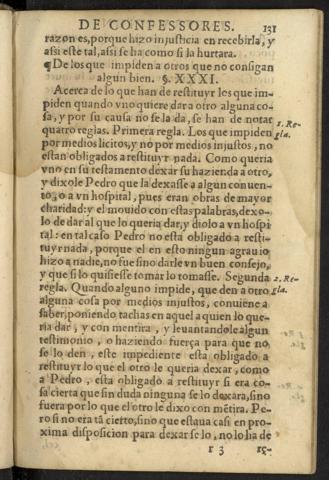 DE CONFESSORES. 131
razon es, porque hizo injusticia en recebirla, y
assi este tal, assi se ha como si la hurtara.
¶De los que impiden a otros que no consigan
algun bien. §. XXXI.
Acerca de lo que han de restituyr los que im-
piden quando vno quiere dar a otro alguna co-
sa, y por su causa no se la da, se han de notar
quatro reglas. Primera regla. Los que impiden
1. Re-
gla.
por medios licitos, y no por medios injustos, no
estan obligados a restituyr nada. Como queria
vno en su testamento dexar su hazienda a otro,
y dixole Pedro que la dexasse a algun conuen-
to, o a vn hospital, pues eran obras de mayor
charidad: y el mouido con estas palabras, dexo-
lo de dar al que lo queria dar, y diolo a vn hospi
tal: en tal caso Pedro no està obligado a resti-
tuyr nada, porque el en esto ningun agrauio
hizo a nadie, no fue sino darle vn buen consejo,
y que si lo quisiesse tomar lo tomasse. Segunda
2. Re-
gla.
regla. Quando alguno impide, que den a otro
alguna cosa por medios injustos, conuiene a
saber, poniendo tachas en aquel a quien lo que-
ria dar, y con mentira, y leuantandole algun
testimonio, o haziendo fuerça para que no
se lo den, este impediente esta obligado a
restituyr lo que el otro le queria dexar, como
a Pedro, esta obligado a restituyr si era co-
sa cierta que sin duda ninguna se lo dexara, sino
fuera por lo que el otro le dixo con mẽtira. Pe-
ro si no era tã cierto, sino que estaua casi en pro-
xima disposicion para dexarselo, no lo ha de
r 3 re-